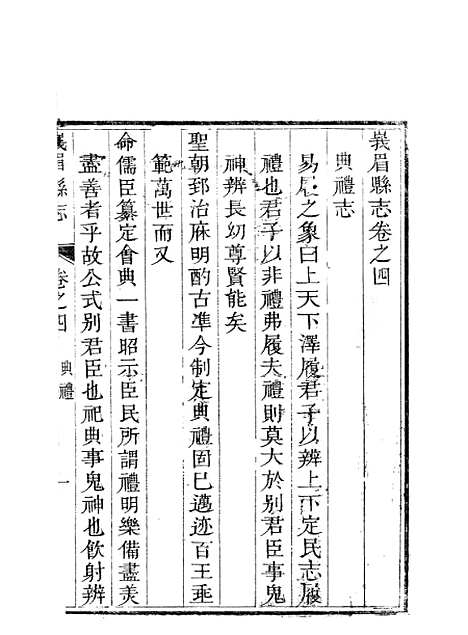 峩眉縣志卷之四
典禮志
易履之象曰上天下澤履君子以辨上下定民志履
禮也君子以非禮弗履夫禮則莫大於別君臣事鬼
神辨長幼尊賢能矣
聖朝郅治庥明酌古準今制定典禮固已邁迹百王垂
範萬世而又
命儒臣纂定會典一書昭示臣民所謂禮明樂備盡美
盡善者乎故公式別君臣也祀典事鬼神也飲射辨
峩眉縣志 卷之四 典禮 一